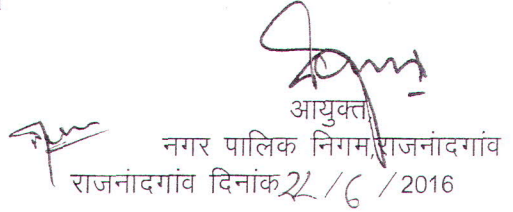 आयुक्त,
नगर पालिक निगम,राजनांदगांव
राजनांदगांव दिनांक 22/6/2016